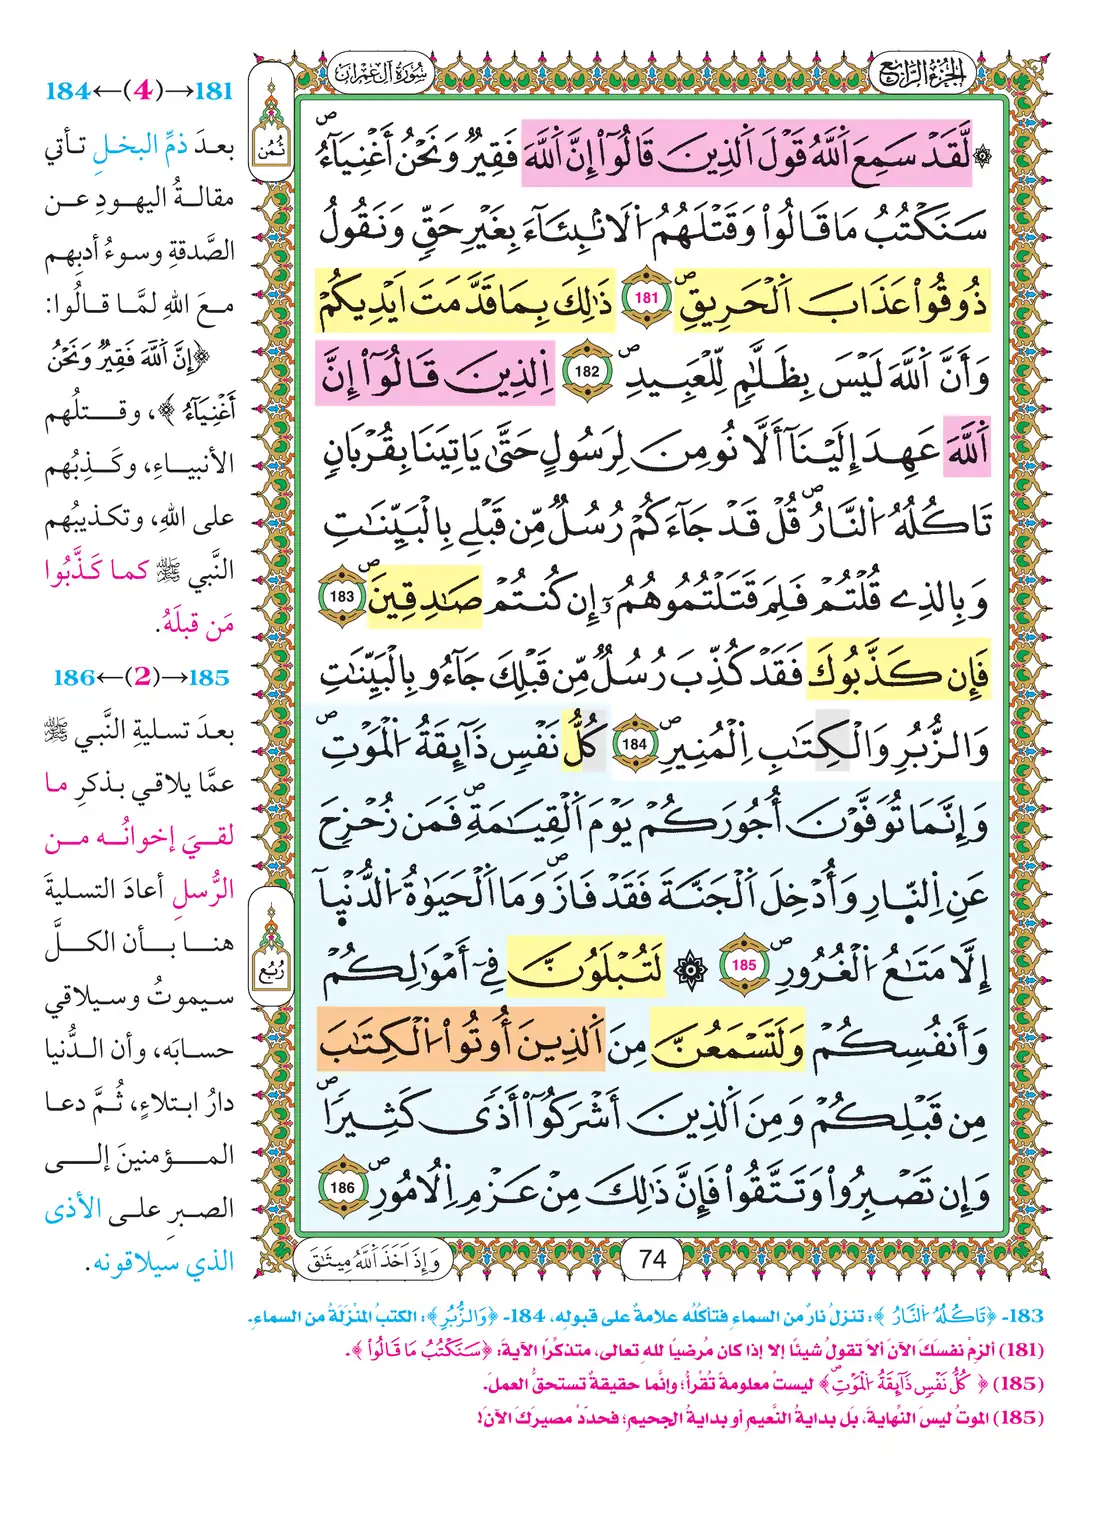 الجزء الرابع
سورة آل عمران
ثمن
۞ لَّقَدْ سَمِعَ اَللَّهُ قَوْلَ اَلذِينَ قَالُوٓاْ إِنَّ اَللَّهَ فَقِيرٞ وَنَحْنُ أَغْنِيَآءُۖ
سَنَكْتُبُ مَا قَالُواْ وَقَتْلَهُمُ اُلَانۢبِئَآءَ بِغَيْرِ حَقّٖ وَنَقُولُ
ذُوقُواْ عَذَابَ اَلْحَرِيقِۖ 181 ذَٰلِكَ بِمَا قَدَّمَتَ اَيْدِيكُمْ
وَأَنَّ اَللَّهَ لَيْسَ بِظَلَّٰمٖ لِّلْعَبِيدِۖ 182 اِلذِينَ قَالُوٓاْ إِنَّ
اَللَّهَ عَهِدَ إِلَيْنَآ أَلَّا نُومِنَ لِرَسُولٍ حَتَّىٰ يَاتِيَنَا بِقُرْبَانٖ
تَاكُلُهُ اُلنَّارُۖ قُلْ قَدْ جَآءَكُمْ رُسُلٞ مِّن قَبْلِے بِالْبَيِّنَٰتِ
وَبِالذِے قُلْتُمْ فَلِمَ قَتَلْتُمُوهُمُۥٓ إِن كُنتُمْ صَٰدِقِينَۖ 183
فَإِن كَذَّبُوكَ فَقَدْ كُذِّبَ رُسُلٞ مِّن قَبْلِكَ جَآءُو بِالْبَيِّنَٰتِ
وَالزُّبُرِ وَالْكِتَٰبِ اِلْمُنِيرِۖ 184 كُلُّ نَفْسٖ ذَآئِقَةُ اُلْمَوْتِۖ
وَإِنَّمَا تُوَفَّوْنَ أُجُورَكُمْ يَوْمَ اَلْقِيَٰمَةِۖ فَمَن زُحْزِحَ
عَنِ اِلنّ۪ارِ وَأُدْخِلَ اَلْجَنَّةَ فَقَدْ فَازَۖ وَمَا اَلْحَيَوٰةُ اُلدُّنْي۪آ
إِلَّا مَتَٰعُ اُلْغُرُورِۖ 185 ۞ لَتُبْلَوُنَّ فِےٓ أَمْوَٰلِكُمْ
ربع
وَأَنفُسِكُمْ وَلَتَسْمَعُنَّ مِنَ اَلذِينَ أُوتُواْ اُلْكِتَٰبَ
مِن قَبْلِكُمْ وَمِنَ اَلذِينَ أَشْرَكُوٓاْ أَذىٗ كَثِيراٗۖ
وَإِن تَصْبِرُواْ وَتَتَّقُواْ فَإِنَّ ذَٰلِكَ مِنْ عَزْمِ اِلُامُورِۖ 186
74
وَإِذَ اَخَذَ اَللَّهُ مِيثَٰقَ
181→(4)←184
بعدَ ذمِّ البخلِ تأتي
مقالةُ اليهودِ عن
الصَّدقةِ وسوءُ أدبِهم
معَ اللهِ لمَّا قالُوا:
﴿إِنَّ اَللَّهَ فَقِيرٞ وَنَحْنُ
أَغْنِيَآءُ﴾، وقتلُهم
الأنبياءِ، وكَذِبُهم
على اللهِ، وتكذيبُهم
النَّبي ﷺ كما كَذَّبُوا
مَن قبلَهُ.
185→(2)←186
بعدَ تسليةِ النَّبي ﷺ
عمَّا يلاقي بذكرِ ما
لقيَ إخوانُه من
الرُّسلِ أعادَ التسليةَ
هنا بأن الكلَّ
سيموتُ وسيلاقي
حسابَه، وأن الدُّنيا
دارُ ابتلاءٍ، ثُمَّ دعا
المؤمنينَ إلى
الصبرِ على الأذى
الذي سيلاقونه.
183- ﴿تَاكُلُهُ اُلنَّارُ﴾: تنزلُ نارٌ من السماءِ فتأكلُه علامةً على قبولِه، 184- ﴿وَالزُّبُرِ﴾: الكتبُ المُنْزَلَةُ من السماءِ.
(181) ألزِمْ نفسَكَ الآنَ ألاَّ تقولُ شيئًا إلا إذا كان مُرضيًا للهِ تعالى، متذكِّرًا الآيةَ: ﴿سَنَكْتُبُ مَا قَالُواْ﴾.
(185) ﴿كُلُّ نَفْسٖ ذَآئِقَةُ اُلْمَوْتِۖ﴾ ليستْ معلومةً تُقْرأُ؛ وإنَّما حقيقةٌ تستحقُّ العملَ.
(185) الموتُ ليسَ النِّهايةَ، بَل بدايةُ النَّعيمِ أو بدايةُ الجحيمِ؛ فحدِّدْ مصيرَكَ الآنَ!